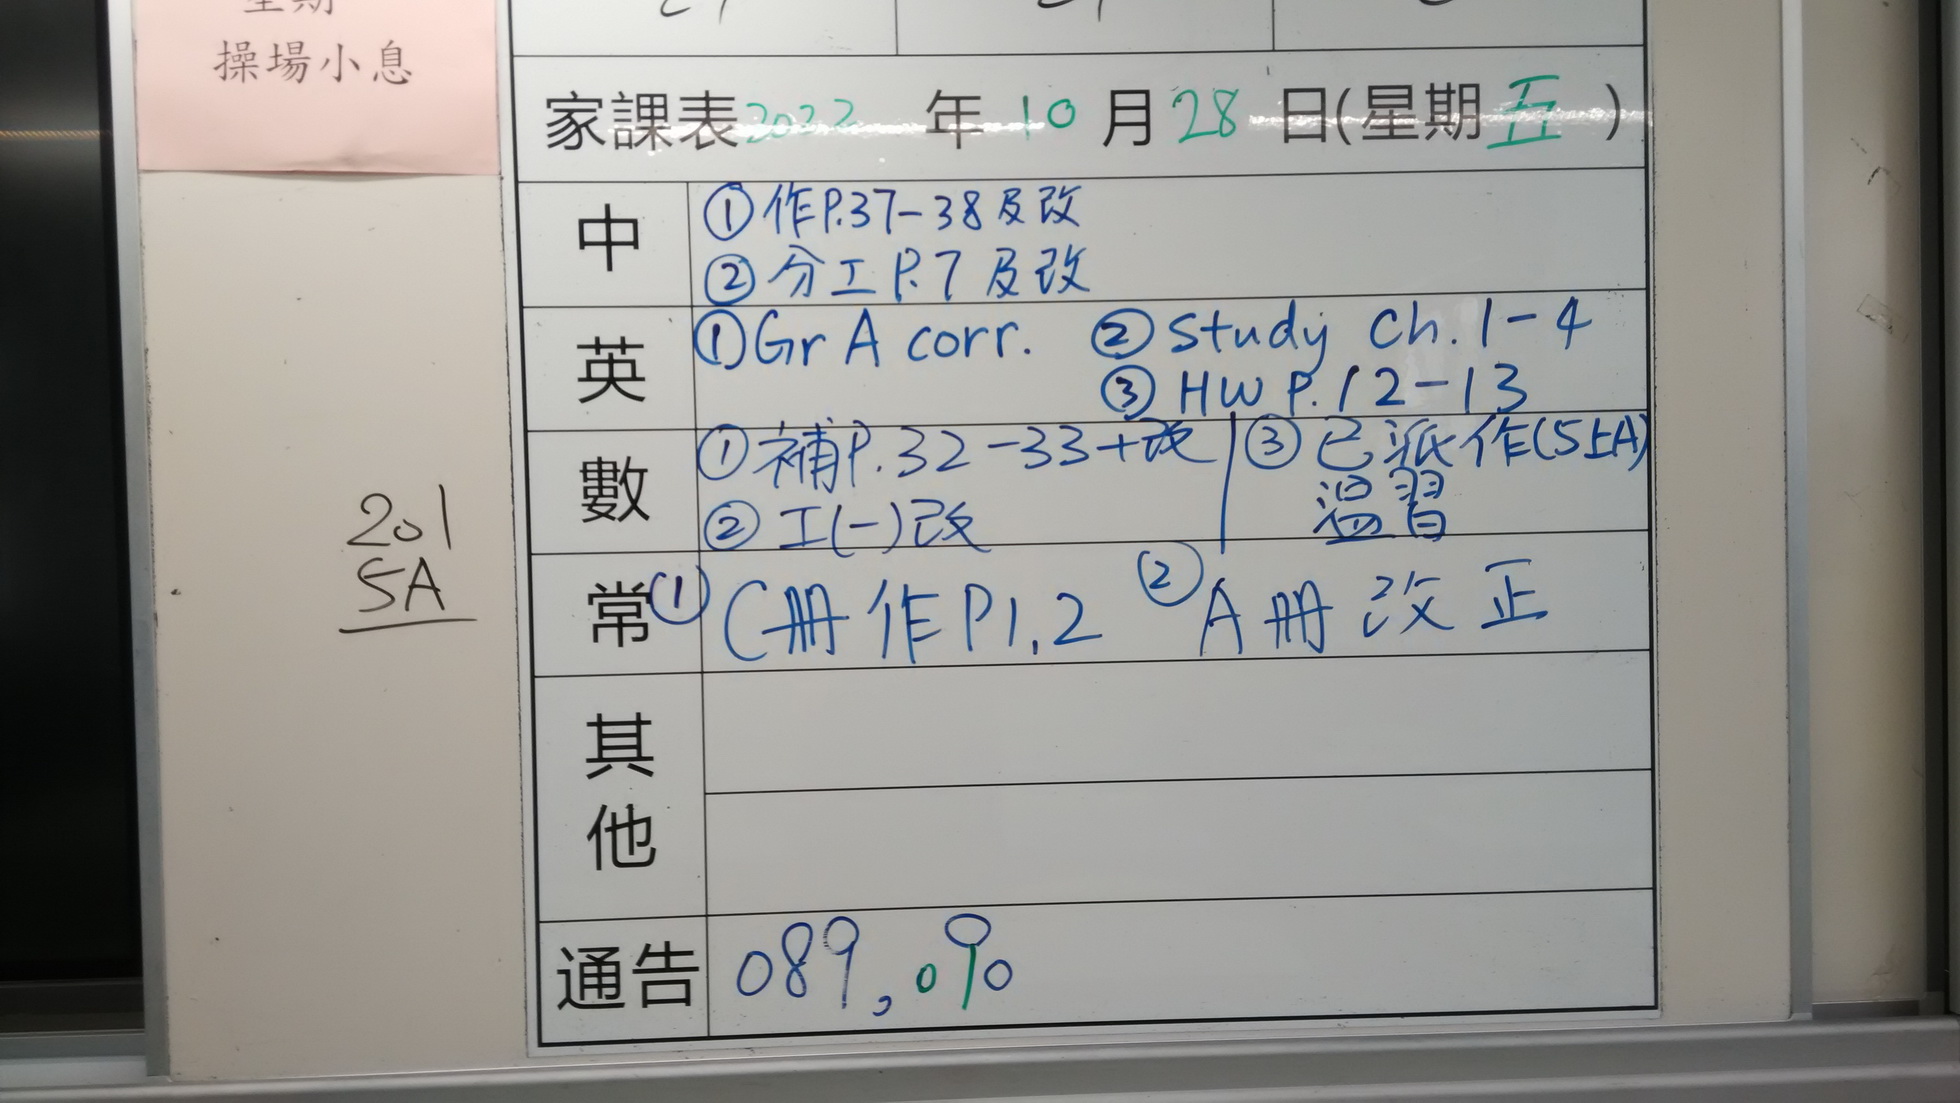 操場小息
家課表 2022 年 10 月 28 日(星期 五 )
中
①作P.37-38及改
②分工P.7及改
英
①Gr A corr. ②Study Ch. 1-4
③HW P.12-13
數
①補P.32-33+改 ③已派作(5上A)
②工(一)改 溫習
常
①C冊作P1,2 ②A冊改正
201
5A
其
他
通告
089, 090